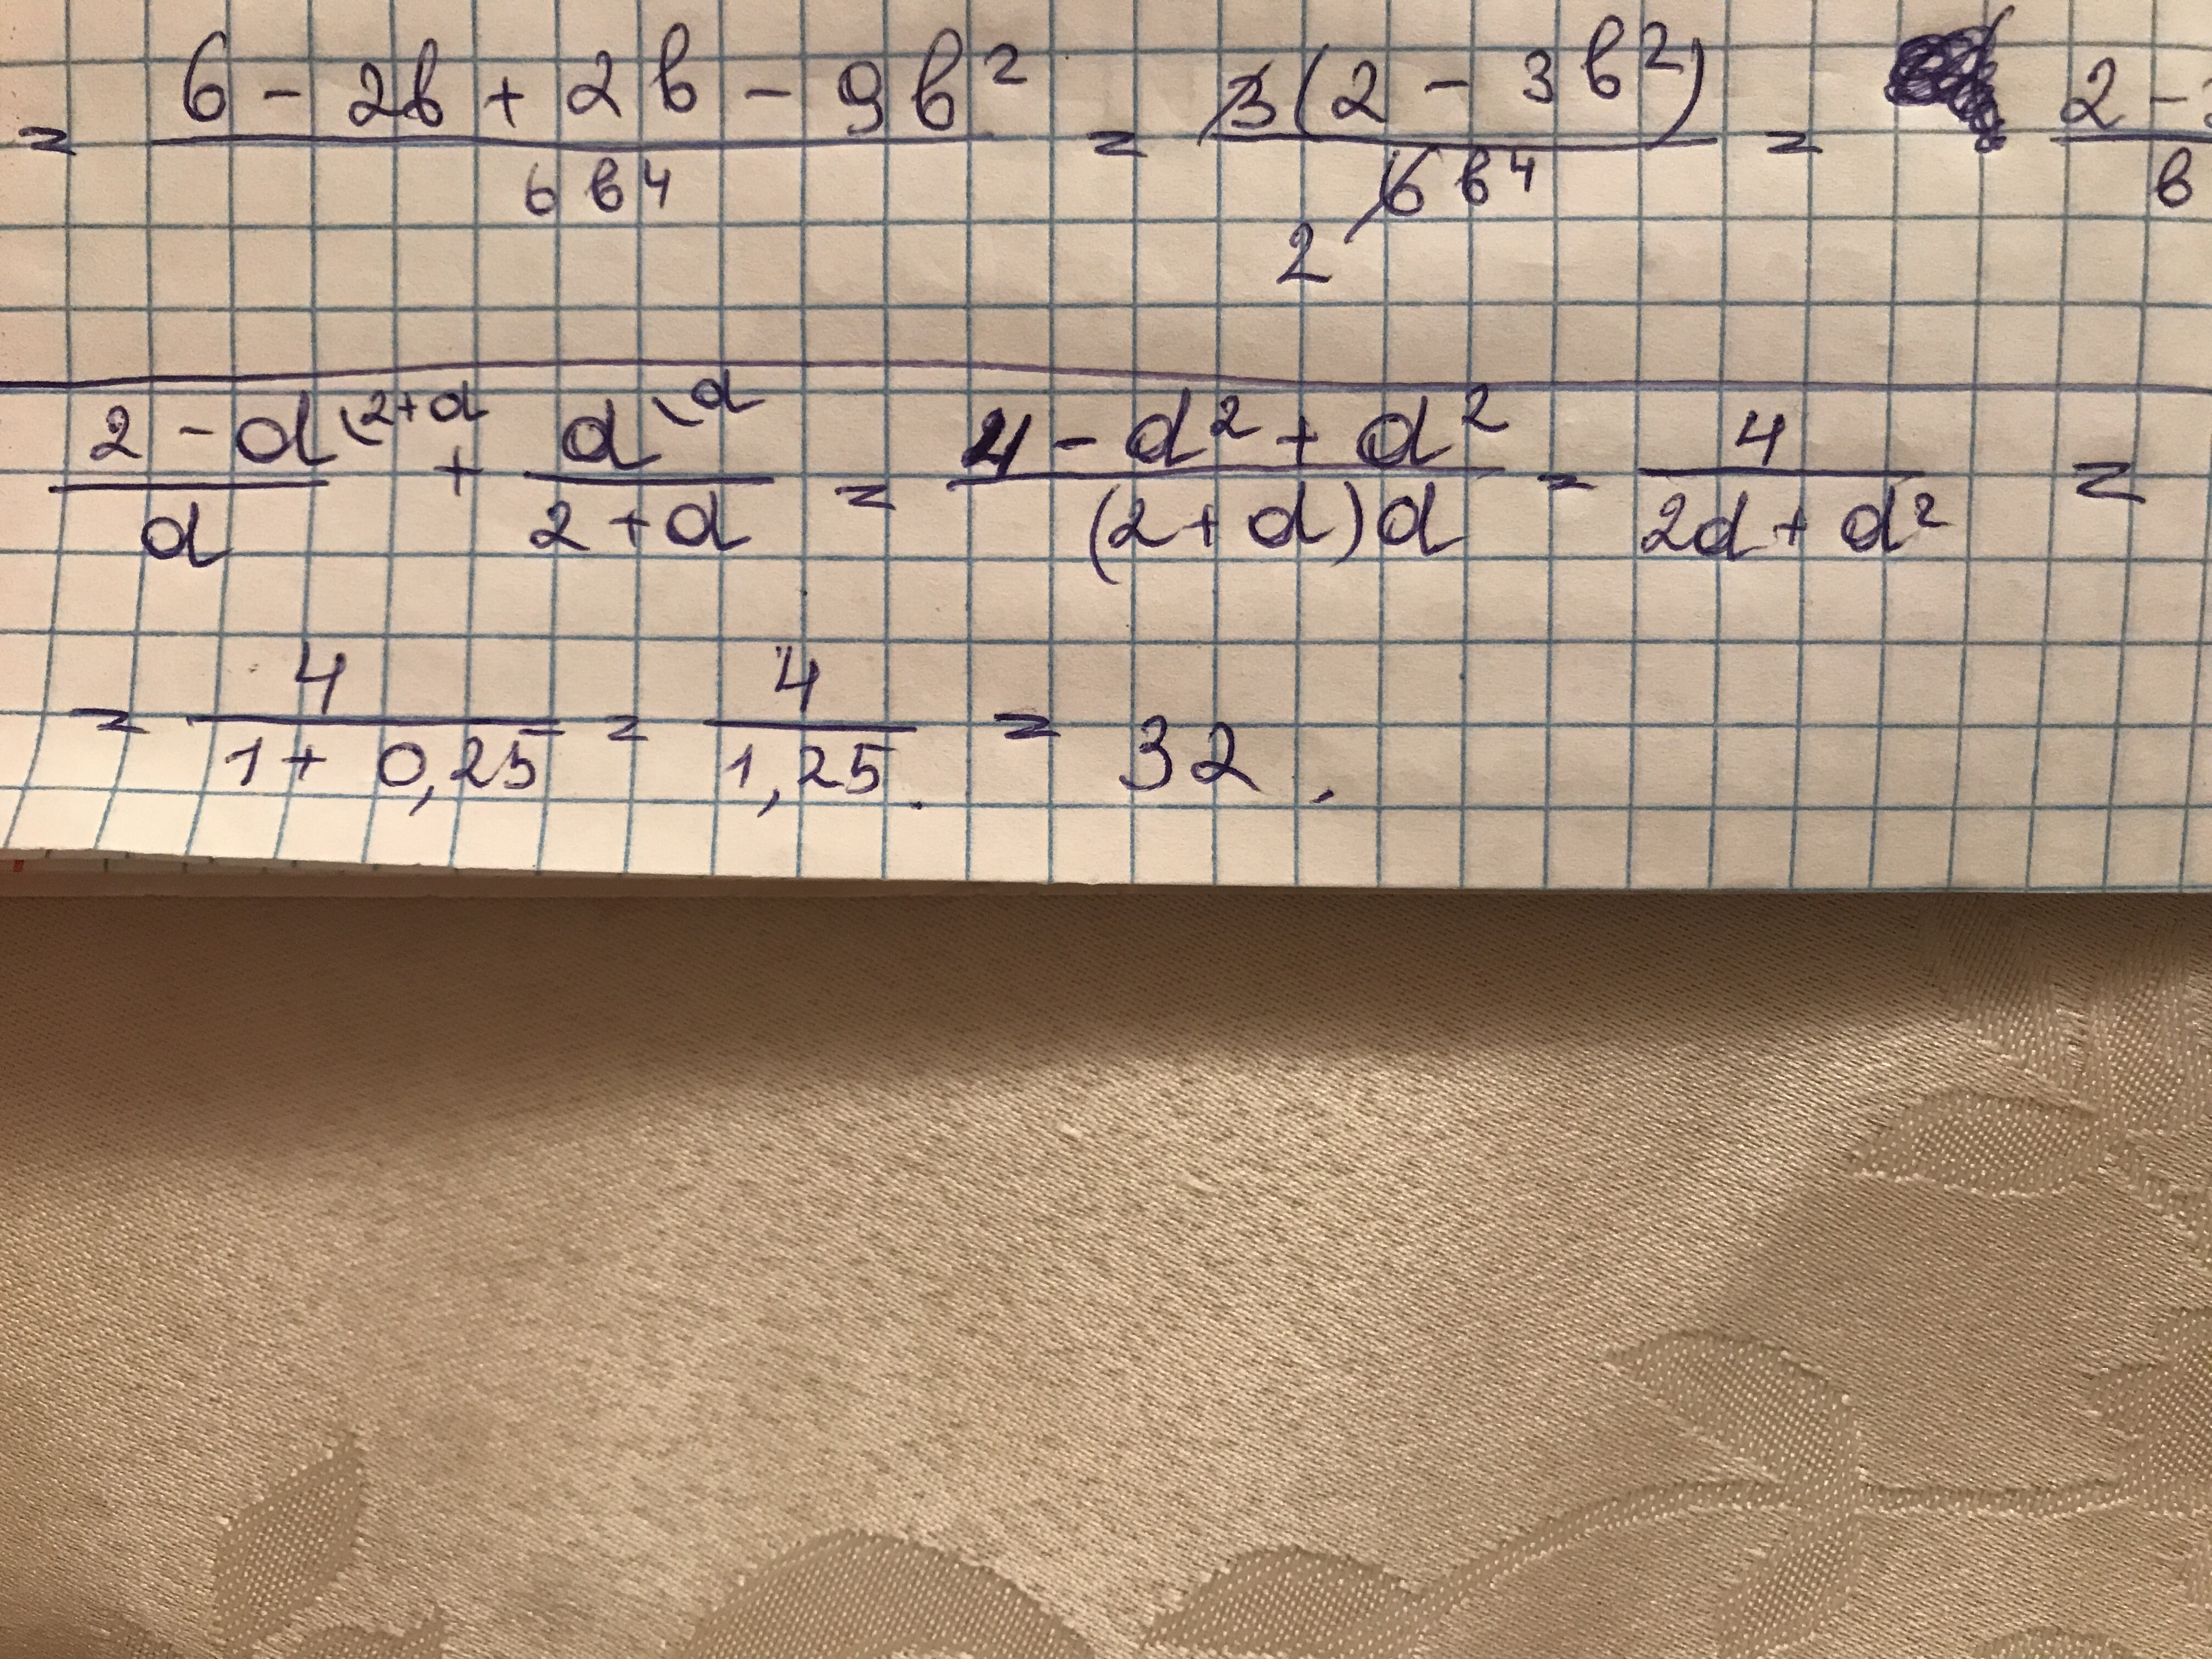 = (6 - 2в + 2в - 9в²)/(6в⁴) = (3(2 - 3в²))/(2 6в⁴) = (2 -)/(в
(2 - a\2+a)/a + (a\a)/(2 + a) = (4 - a² + a²)/((2 + a)a) = 4/(2a + a²) =
= 4/(1 + 0,25) = 4/(1,25) = 32.